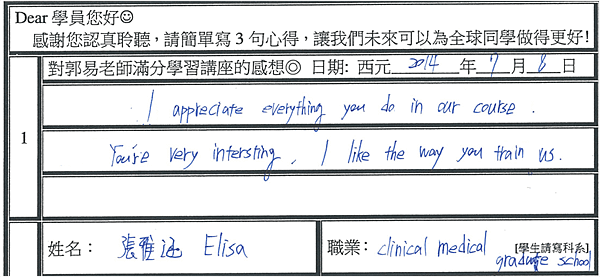 Dear 學員您好☺
感謝您認真聆聽，請簡單寫 3 句心得，讓我們未來可以為全球同學做得更好!
對郭易老師滿分學習講座的感想◎ 日期: 西元 2014 年 7 月 8 日
1
I appreciate everything you do in our course.
You're very intersting, I like the way you train us.
姓名： 張雅涵 Elisa
職業： clinical medical [學生請寫科系]
graduate school